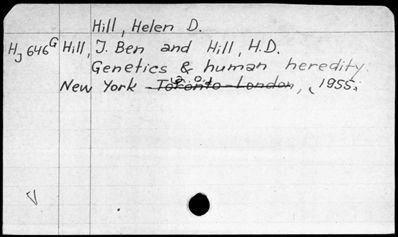 Hill, Helen D.
HJ 646G Hill, J. Ben and Hill, H.D.
Genetics & human heredity.
New York Toronto London, 1955.